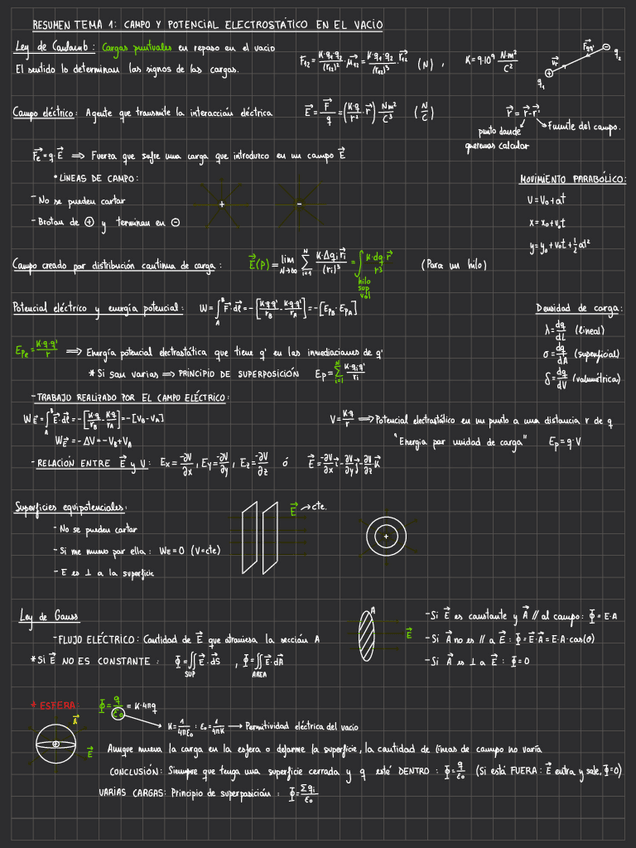 RESUMEN TEMA 1: CAMPO Y POTENCIAL ELECTROSTÁTICO EN EL VACIO
Ley de Coulomb: Cargas puntuales en reposo en el vacio
El sentido lo determinan los signos de las cargas.
(N), K=9·10⁹ N·m²/C²
q₁ q₂
Campo eléctrico: Agente que transmite la interacción eléctrica
(N/C)
punto donde queramos calcular
Fuente del campo.
Fe = q·E ⟹ Fuerza que sufre una carga que introduzco en un campo E
* LÍNEAS DE CAMPO:
- No se pueden cortar
- Brotan de ⊕ y terminan en ⊖
+ -
MOVIMIENTO PARABÓLICO:
V = V₀ + at
x = x₀ + v₀t
y = y₀ + v₀t + 1/2 at²
Campo creado por distribución continua de carga:
hilo
sup
vol
(Para un hilo)
Potencial eléctrico y energía potencial:
Densidad de carga:
λ = dq/dL (lineal)
σ = dq/dA (superficial)
δ = dq/dV (volumétrica)
⟹ Energía potencial electrostática que tiene q' en las inmediaciones de q
* Si son varias ⟹ PRINCIPIO DE SUPERPOSICIÓN
- TRABAJO REALIZADO POR EL CAMPO ELÉCTRICO:
V = K·q/r ⟹ Potencial electrostático en un punto a una distancia r de q
"Energía por unidad de carga" Ep = q·V
- RELACIÓN ENTRE E y V: Ex = -∂V/∂x, Ey = -∂V/∂y, Ez = -∂V/∂z ó
Superficies equipotenciales:
- No se pueden cortar
- Si me muevo por ella: WE = 0 (V = cte)
- E es ⊥ a la superficie
E → cte.
+
Ley de Gauss
- FLUJO ELÉCTRICO: Cantidad de E que atraviesa la sección A
* Si E NO ES CONSTANTE: Φ = ∬ E·dS, Φ = ∬ E·dA
SUP AREA
A
E
- Si E es constante y A // al campo: Φ = E·A
- Si A no es // a E: Φ = E·A = E·A·cos(θ)
- Si A es ⊥ a E: Φ = 0
* ESFERA:
Φ = q/ε₀ = K·4πq
K = 1/4πε₀ : ε₀ = 1/4πK → Permitividad eléctrica del vacio
A
E
Aunque mueva la carga en la esfera o deforme la superficie, la cantidad de líneas de campo no varía
CONCLUSIÓN: Siempre que tenga una superficie cerrada y q esté DENTRO: Φ = q/ε₀ (Si está FUERA: E entra y sale, Φ=0)
VARIAS CARGAS: Principio de superposición: Φ = Σqi/ε₀